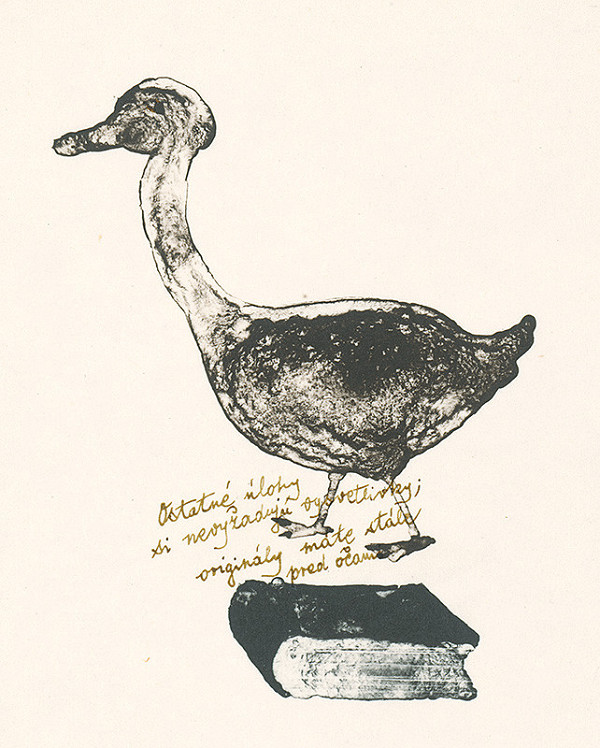 Ostatné úlohy
si nevyžadujú vysvetlivky;
originály máte stále
pred očami